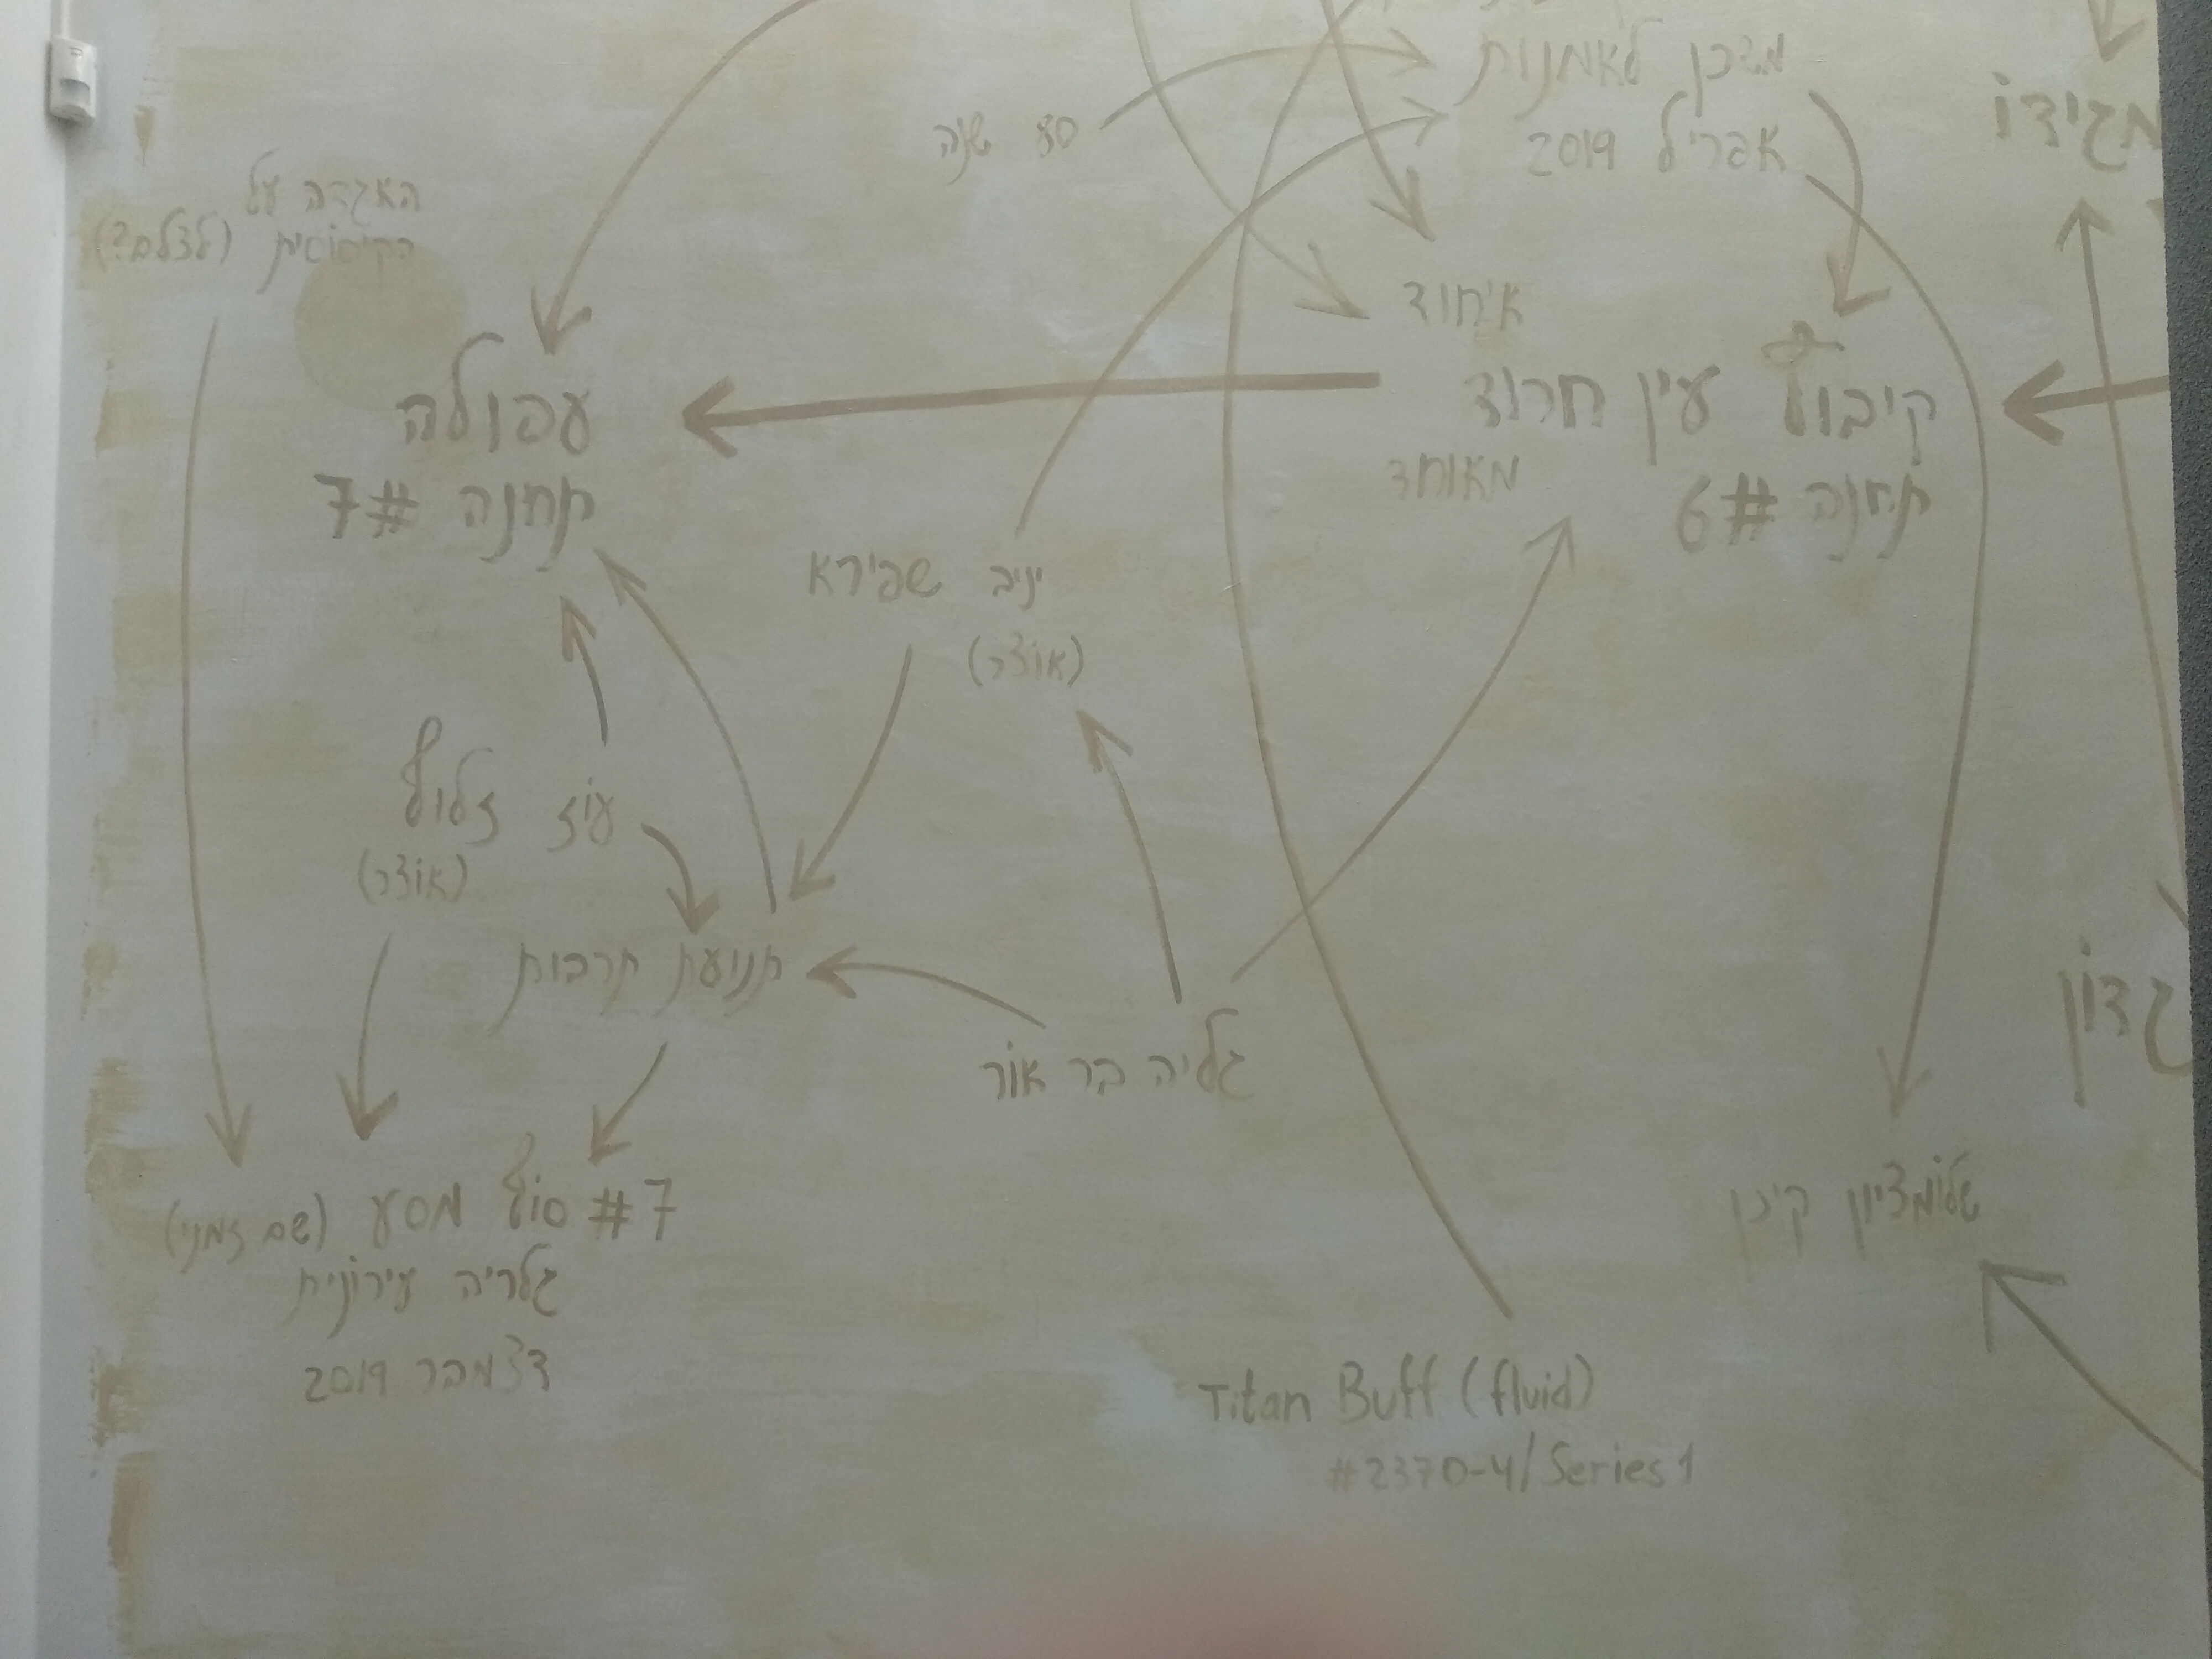 משכן לאמנות
אפריל 2019
80 שנה
מגידו
האגדה על
(לצלם?)
איחוד
קיבוץ עין חרוד
מאוחד
תחנה #6
עפולה
תחנה #7
יניב שפירא
(אוצר)
עוז זלוף
(אוצר)
תנועת תרבות
גליה בר אור
גדון
שלומציון קינן
#7 סוף מסע (שם זמני)
גלריה עירונית
דצמבר 2019
Titan Buff (fluid)
#2370-4/Series 1